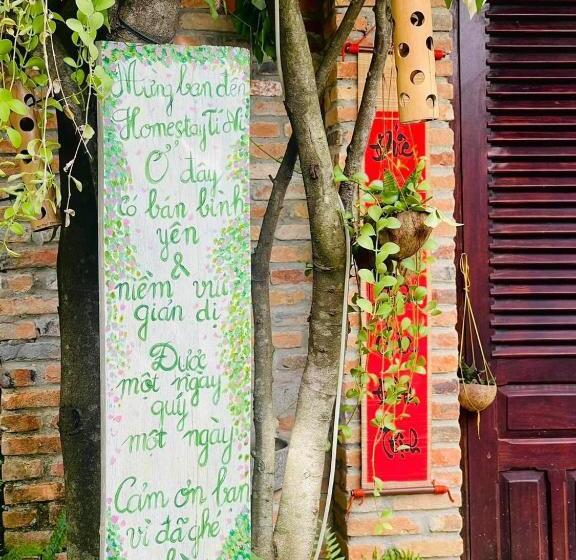 Mừng bạn đến
Homestay Ti Ni
Ở đây
có bán bình
yên
&
niềm vui
giản dị
Được
một ngày
quý
một ngày
Cảm ơn bạn
vì đã ghé
Đức